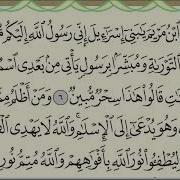 ٱبْنُ مَرْيَمَ يَٰبَنِىٓ إِسْرَٰٓءِيلَ إِنِّى رَسُولُ ٱللَّهِ إِلَيْكُم
ٱلتَّوْرَىٰةِ وَمُبَشِّرًۢا بِرَسُولٍ يَأْتِى مِنۢ بَعْدِى ٱسْمُ
تِ قَالُوا۟ هَٰذَا سِحْرٌ مُّبِينٌ ٦ وَمَنْ أَظْلَمُ مِمَّ
وَهُوَ يُدْعَىٰٓ إِلَى ٱلْإِسْلَٰمِ ۚ وَٱللَّهُ لَا يَهْدِى ٱلْقَ
لِيُطْفِـُٔوا۟ نُورَ ٱللَّهِ بِأَفْوَٰهِهِمْ وَٱللَّهُ مُتِمُّ نُورِ